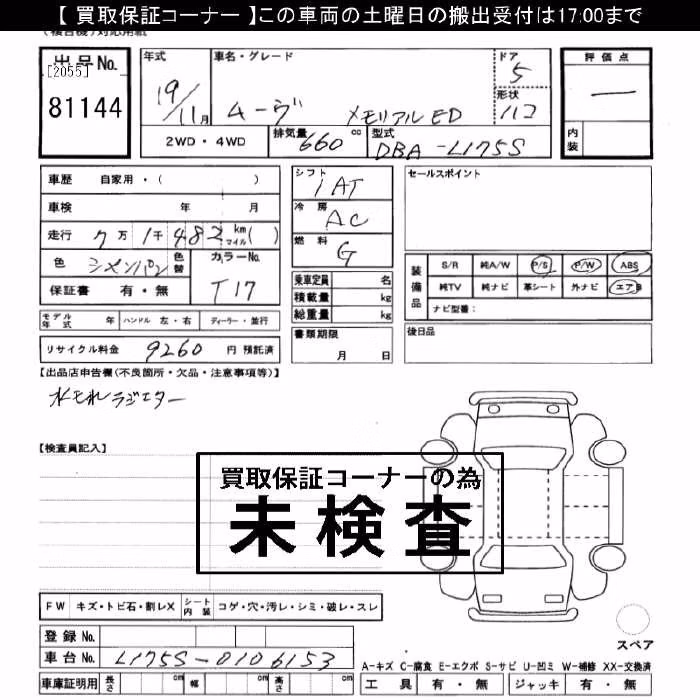 【 買取保証コーナー 】この車両の土曜日の搬出受付は17:00まで
出品No.
[2055]
81144
年式
19/11月
車名・グレード
ムーヴ メモリアルED
ドア
5
形状
ハコ
評価点
—
内装
2WD・4WD
排気量 660 cc
型式
DBA-L175S
車歴 自家用・( )
車検 年 月
走行 7万1千482 km マイル( )
色
色替
カラーNo.
T17
保証書 有・無
シフト
IAT
冷房
AC
燃料
G
乗車定員 名
積載量 kg
総重量 kg
セールスポイント
装備品
S/R 純A/W P/S P/W ABS
純TV 純ナビ 革シート 外ナビ エアB
ナビ型番:
モデル年式 年 ハンドル 左・右 ディーラー・並行
書類期限
月 日
後日品
リサイクル料金 9260 円 預託済
【出品店申告欄(不良箇所・欠品・注意事項等)】
水モレラジエター
【検査員記入】
買取保証コーナーの為
未検査
FW キズ・トビ石・割レX シート内装 コゲ・穴・汚レ・シミ・破レ・スレ
スペア
登録No.
車台No. L175S-0106153
A-キズ C-腐食 E-エクボ S-サビ U-凹ミ W-補修 XX-交換済
車庫証明用 長さ cm 幅 cm 高さ cm
工具 有・無 ジャッキ 有・無